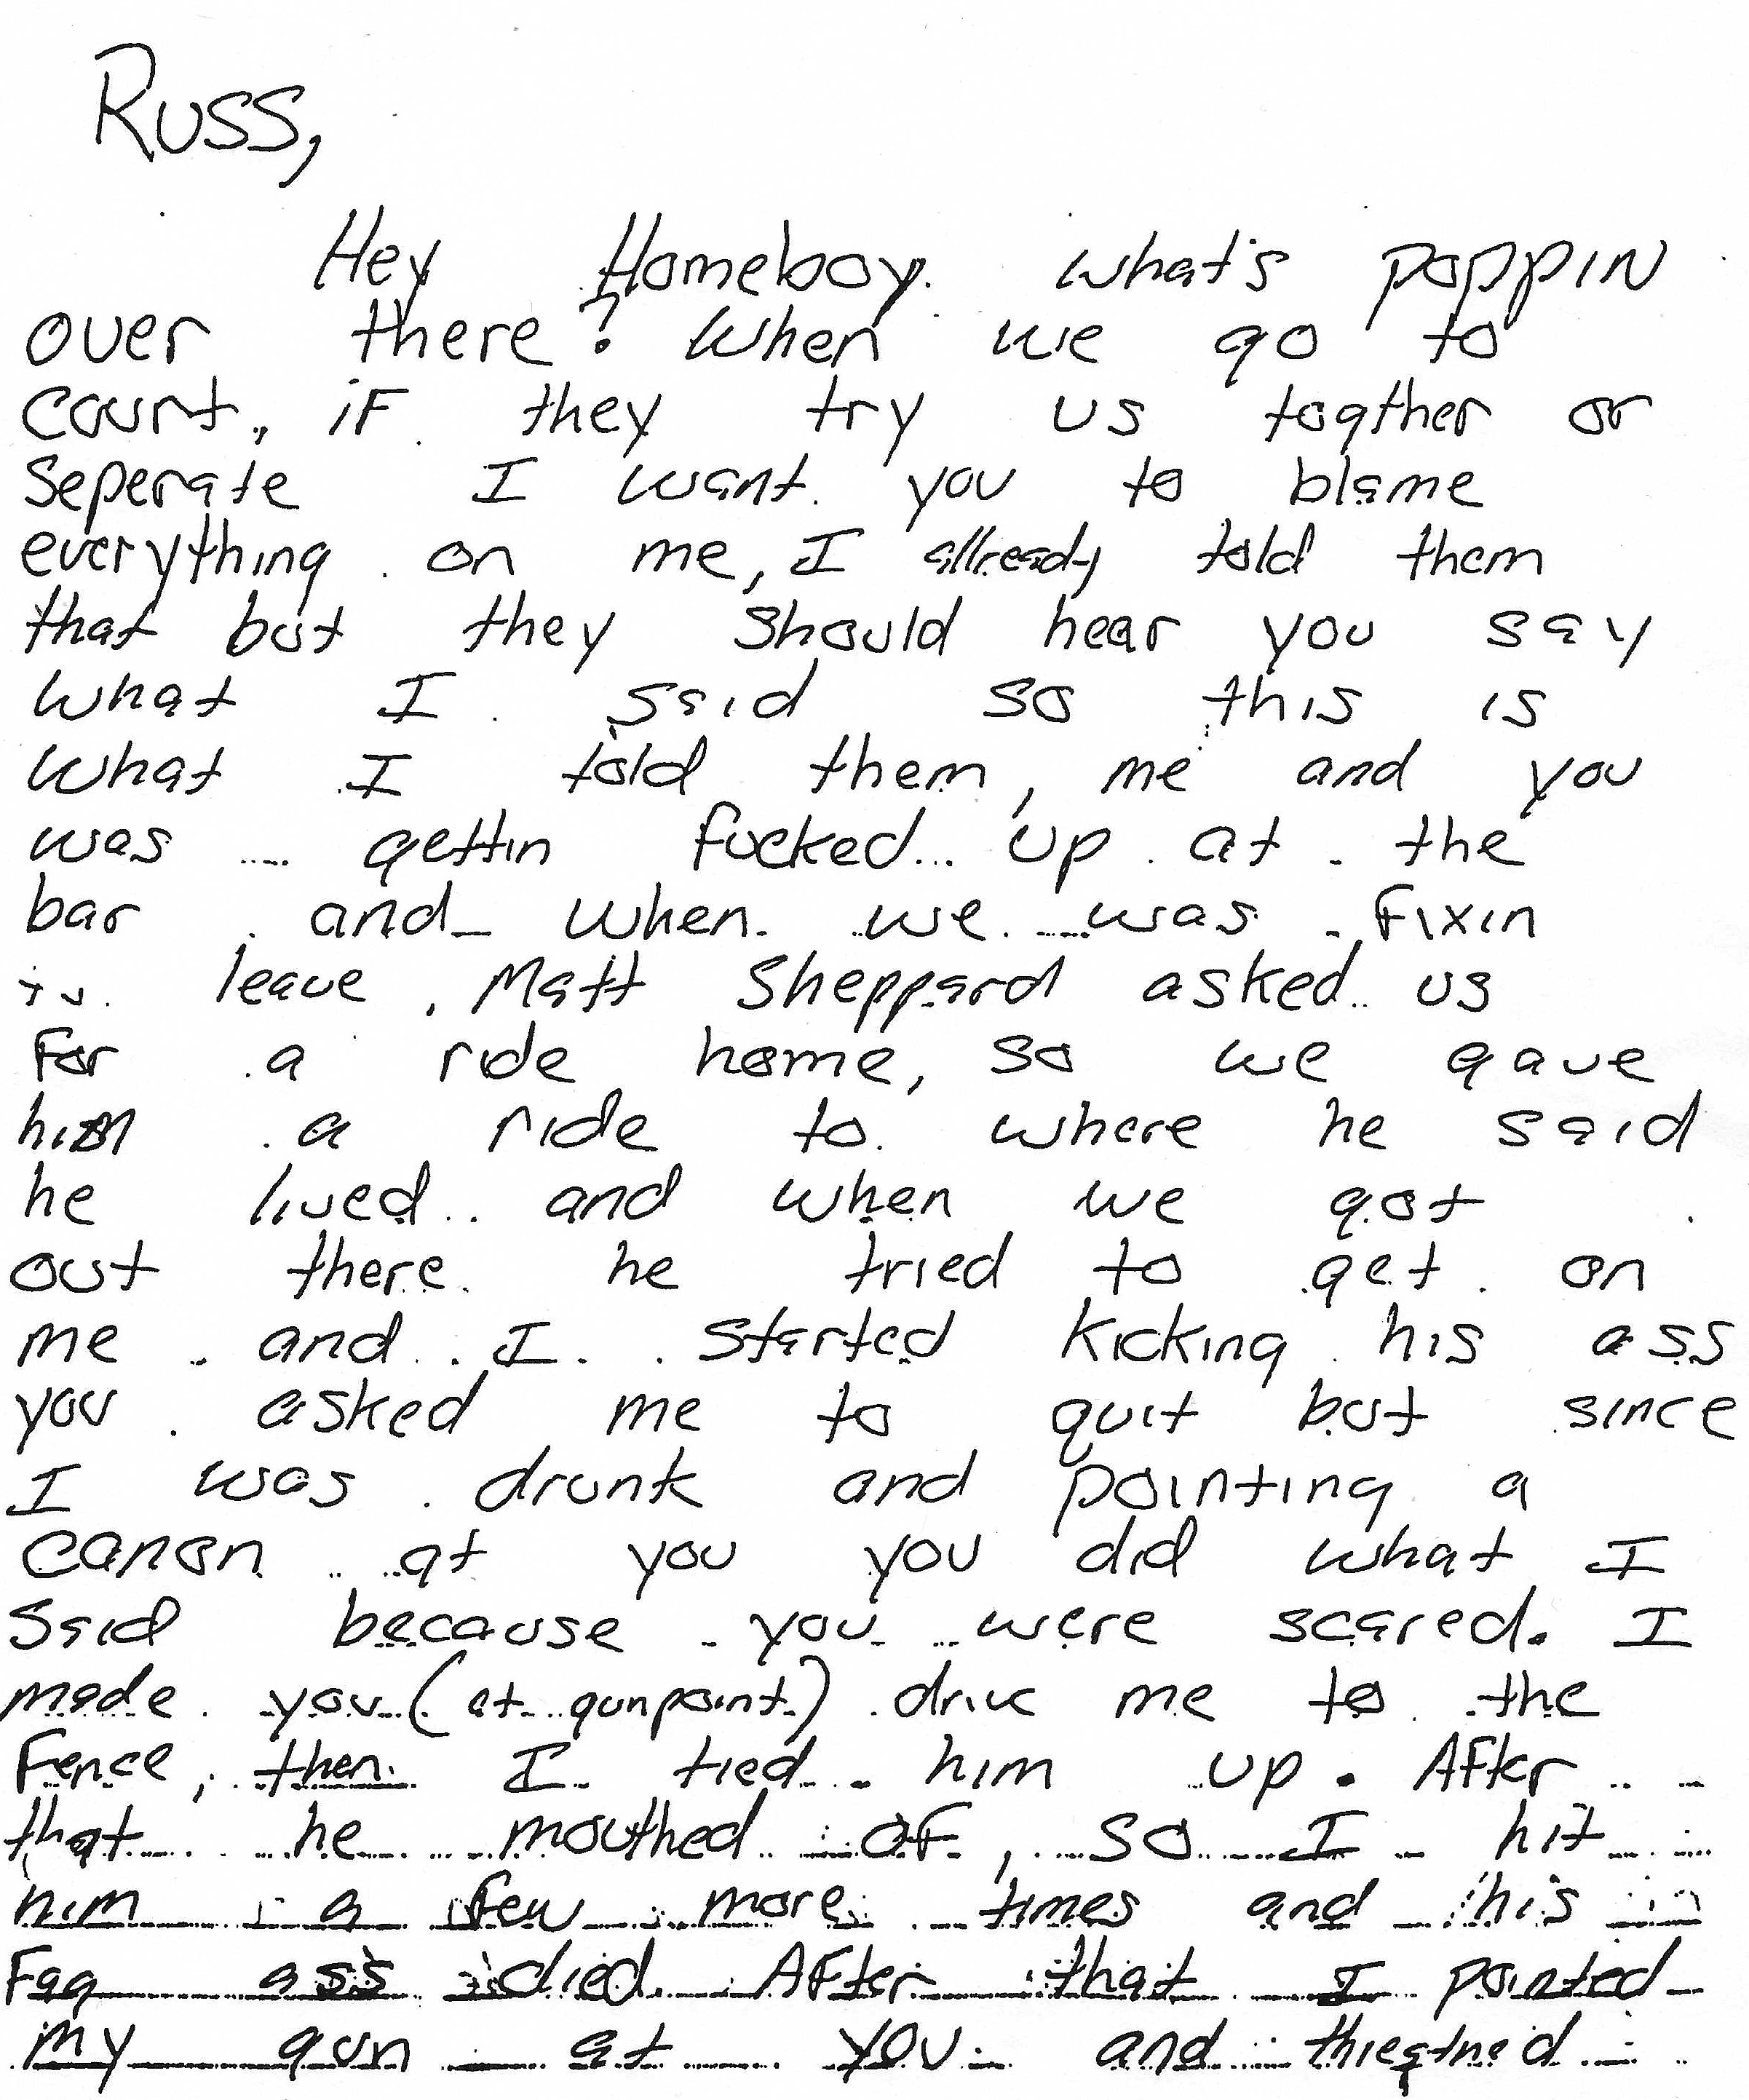 Russ,
Hey Homeboy. what's poppin
over there? When we go to
court, if they try us togther or
seperate I want you to blame
everything on me, I allready told them
that but they should hear you say
what I said so this is
what I told them, me and you
was gettin fucked up at the
bar and when we was fixin
to leave, Matt Sheppard asked us
for a ride home, so we gave
him a ride to where he said
he lived and when we got
out there he tried to get on
me and I started kicking his ass
you asked me to quit but since
I was drunk and pointing a
canon at you you did what I
said because you were scared. I
made you (at gunpoint) drive me to the
Fence, then I tied him up. After
that he mouthed of, so I hit
him a few more times and his
Fag ass died. After that I pointed
my gun at you and